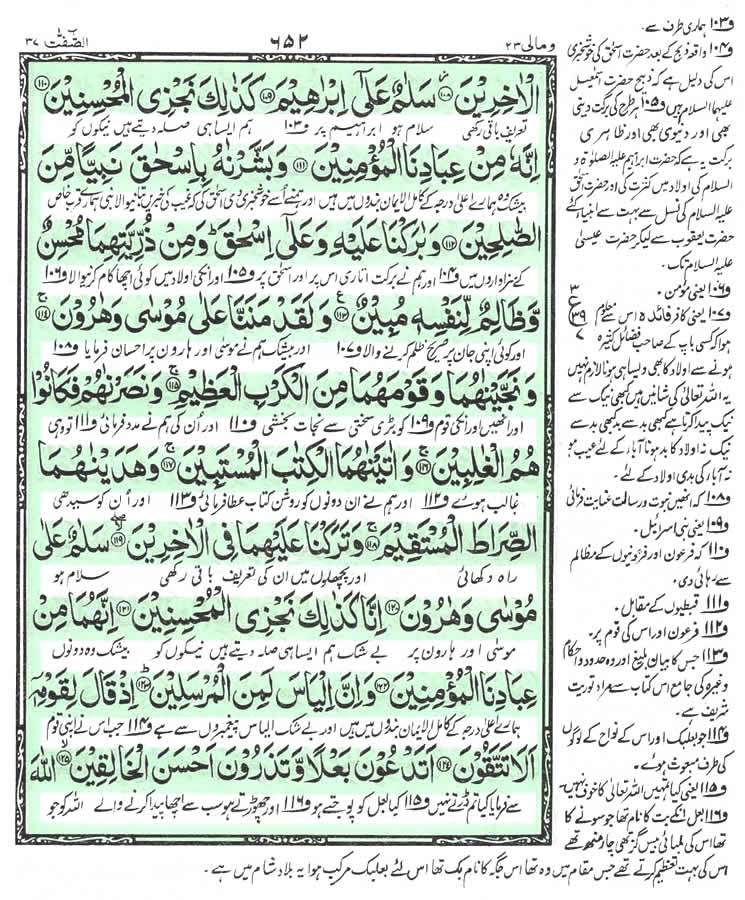 الصّٰٓفّٰت ٣٧
٦٥٢
و مالی ٢٣
الْاٰخِرِیْنَ ﴿۱۰۸﴾ سَلٰمٌ عَلٰۤی اِبْرٰهِیْمَ ﴿۱۰۹﴾ كَذٰلِكَ نَجْزِی الْمُحْسِنِیْنَ ﴿۱۱۰﴾
تعریف باقی رکھی سلام ہو ابراہیم پر و۱۰۳ ہم ایسا ہی صلہ دیتے ہیں نیکوں کو
اِنَّهٗ مِنْ عِبَادِنَا الْمُؤْمِنِیْنَ ﴿۱۱۱﴾ وَ بَشَّرْنٰهُ بِاِسْحٰقَ نَبِیًّا مِّنَ
بیشک وہ ہمارے اعلیٰ درجہ کے کامل الایمان بندوں میں ہیں اور ہم نے اسے خوشخبری دی اسحٰق کی کہ غیب کی خبریں بتانیوالا نبی ہمارے قرب خاص
الصّٰلِحِیْنَ ﴿۱۱۲﴾ وَ بٰرَكْنَا عَلَیْهِ وَ عَلٰۤی اِسْحٰقَ ؕ وَ مِنْ ذُرِّیَّتِهِمَا مُحْسِنٌ
کے سزاواروں میں و۱۰۴ اور ہم نے برکت اتاری اس پر اور اسحٰق پر و۱۰۵ اور انکی اولاد میں کوئی اچھا کام کرنیوالا و۱۰۶
وَّ ظَالِمٌ لِّنَفْسِهٖ مُبِیْنٌ ﴿۱۱۳﴾ ع وَ لَقَدْ مَنَنَّا عَلٰی مُوْسٰی وَ هٰرُوْنَ ﴿۱۱۴﴾ ج
اور کوئی اپنی جان پر صریح ظلم کرنے والا و۱۰۷ اور بیشک ہم نے موسیٰ اور ہارون پر احسان فرمایا و۱۰۸
وَ نَجَّیْنٰهُمَا وَ قَوْمَهُمَا مِنَ الْكَرْبِ الْعَظِیْمِ ﴿۱۱۵﴾ وَ نَصَرْنٰهُمْ فَكَانُوْا
اور انھیں اور انکی قوم و۱۰۹ کو بڑی سختی سے نجات بخشی و۱۱۰ اور اُن کی ہم نے مدد فرمائی و۱۱۱ تو وہی
هُمُ الْغٰلِبِیْنَ ﴿۱۱۶﴾ ج وَ اٰتَیْنٰهُمَا الْكِتٰبَ الْمُسْتَبِیْنَ ﴿۱۱۷﴾ ج وَ هَدَیْنٰهُمَا
غالب ہوئے و۱۱۲ اور ہم نے ان دونوں کو روشن کتاب عطا فرمائی و۱۱۳ اور اُن کو سیدھی
الصِّرَاطَ الْمُسْتَقِیْمَ ﴿۱۱۸﴾ ج وَ تَرَكْنَا عَلَیْهِمَا فِی الْاٰخِرِیْنَ ﴿۱۱۹﴾ سَلٰمٌ عَلٰی
راہ دکھائی اور پچھلوں میں ان کی تعریف باقی رکھی سلام ہو
مُوْسٰی وَ هٰرُوْنَ ﴿۱۲۰﴾ اِنَّا كَذٰلِكَ نَجْزِی الْمُحْسِنِیْنَ ﴿۱۲۱﴾ اِنَّهُمَا مِنْ
موسیٰ اور ہارون پر بے شک ہم ایسا ہی صلہ دیتے ہیں نیکوں کو بیشک وہ دونوں
عِبَادِنَا الْمُؤْمِنِیْنَ ﴿۱۲۲﴾ وَ اِنَّ اِلْیَاسَ لَمِنَ الْمُرْسَلِیْنَ ﴿۱۲۳﴾ اِذْ قَالَ لِقَوْمِهٖۤ
ہمارے اعلیٰ درجہ کے کامل الایمان بندوں میں ہیں اور بے شک الیاس پیغمبروں سے ہے و۱۱۴ جب اس نے اپنی قوم
اَلَا تَتَّقُوْنَ ﴿۱۲۴﴾ اَتَدْعُوْنَ بَعْلًا وَّ تَذَرُوْنَ اَحْسَنَ الْخَالِقِیْنَ ﴿۱۲۵﴾ اللّٰهَ
سے فرمایا کیا تم ڈرتے نہیں و۱۱۵ کیا بعل کو پوجتے ہو و۱۱۶ اور چھوڑتے ہو سب سے اچھا پیدا کرنے والے اللہ کو جو
و۱۰۳ ہماری طرف سے۔
و۱۰۴ واقعہ ذبح کے بعد حضرت اسحٰق کی خوشخبری
اس کی دلیل ہے کہ ذبیح حضرت اسمٰعیل
علیہما السلام ہیں و۱۰۵ ہر طرح کی برکت دینی
بھی اور دنیوی بھی اور ظاہری
برکت یہ ہے کہ حضرت ابراہیم علیہ الصلوٰۃ و
السلام کی اولاد میں کثرت کی اور حضرت اسحٰق
علیہ السلام کی نسل سے بہت سے انبیاء کئے
حضرت یعقوب سے لیکر حضرت عیسیٰ
علیہ السلام تک۔
و۱۰۶ یعنی مؤمن۔
و۱۰۷ یعنی کافر فائدہ اس سے معلوم
ہوا کہ کسی باپ کے صاحب فضائل کثیرہ
ہونے سے اولاد کا بھی ویسا ہی ہونا لازم نہیں
یہ اللہ تعالیٰ کی شانیں ہیں کبھی نیک سے
نیک پیدا کرتا ہے کبھی بد سے بد کبھی بد سے
نیک نہ اولاد کا بد ہونا آباء کے لئے عیب ہو
نہ آباء کی بدی اولاد کے لئے۔
و۱۰۸ کہ انھیں نبوت و رسالت عنایت فرمائی
و۱۰۹ یعنی بنی اسرائیل۔
و۱۱۰ کہ فرعون اور فرعونیوں کے مظالم
سے رہائی دی۔
و۱۱۱ قبطیوں کے مقابل۔
و۱۱۲ فرعون اور اس کی قوم پر۔
و۱۱۳ جس کا بیان بلیغ اور وہ حدود و احکام
وغیرہ کی جامع اس کتاب سے مراد توریت
شریف ہے۔
و۱۱۴ جو بعلبک اور اس کے نواح کے لوگوں
کی طرف مبعوث ہوئے۔
و۱۱۵ یعنی کیا تمہیں اللہ تعالیٰ کا خوف نہیں
و۱۱۶ بعل انکے بت کا نام تھا جو سونے کا
تھا اس کی لمبائی بیس گز تھی چار منھ تھے
اس کی بہت تعظیم کرتے تھے جس مقام میں وہ تھا اس جگہ کا نام بک تھا اس لئے بعلبک مرکب ہوا یہ بلاد شام میں ہے۔
٣
ع
٣٩
٧